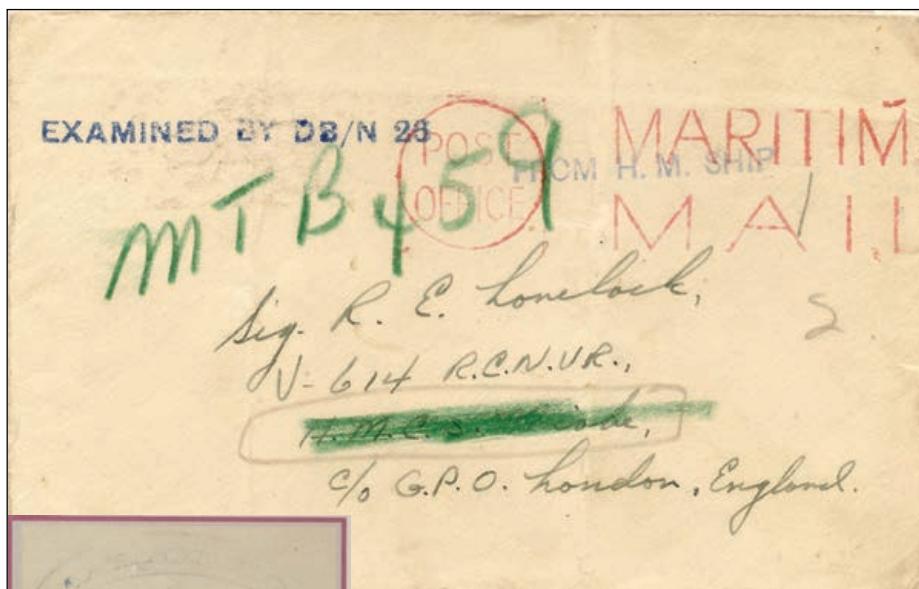 EXAMINED BY DB/N 28
POST OFFICE
MARITIM
MAIL
FROM H. M. SHIP
MTB 459
Sig. R. E. Lovelock,
V-614 R.C.N.V.R.,
H.M.C.S.
c/o G.P.O. London, England.